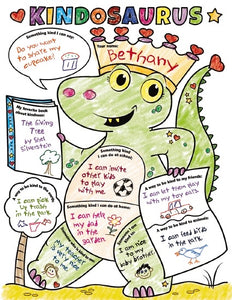 KINDOSAURUS
Something kind I can say:
Do you want
to share my
cupcake!
Your name:
Bethany
My favorite book
about kindness:
The Giving
Tree
by Shel
Silverstein
Something kind I
can do at school:
I can invite
other kids
to play
with me.
A way to be kind to my friends:
I can let them
play with
my toys.
I can pick
up trash
in the park.
Something kind I can do at home:
I can help
my dad
in the
garden.
A way to be kind to animals:
I can feed
birds
in the park.
I am nice to
my baby
brother.